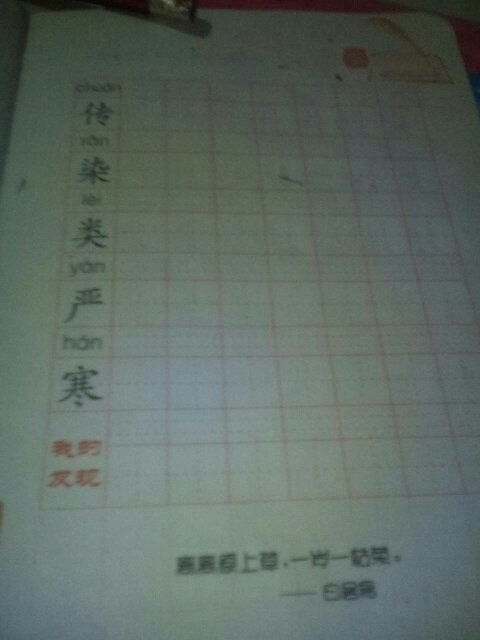 chuán
传
rǎn
染
lèi
类
yán
严
hán
寒
我的
发现
离离原上草，一岁一枯荣。
——白居易